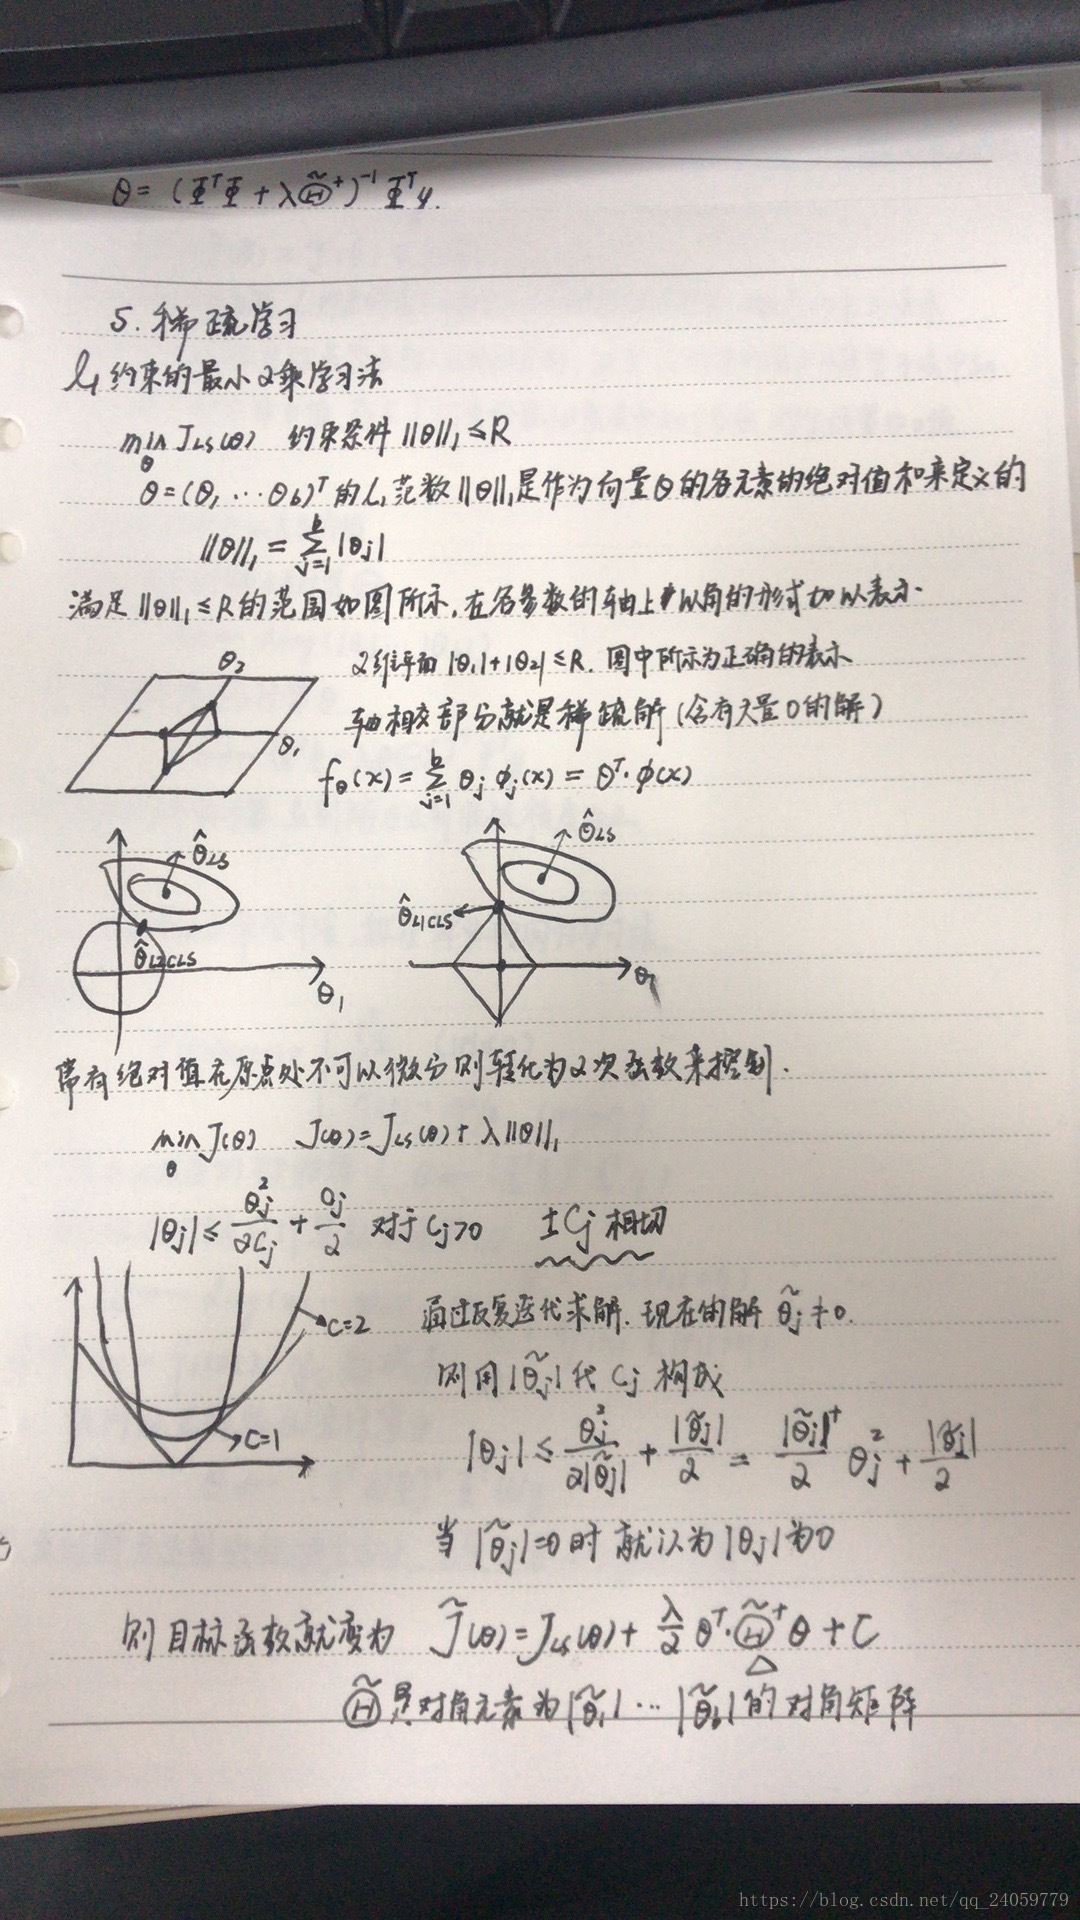 θ = (ΦᵀΦ + λΘ̃⁺)⁻¹Φᵀy.
5. 稀疏学习
l₁约束的最小2乘学习法
min_θ J_LS(θ) 约束条件 ||θ||₁ ≤ R
θ = (θ₁ … θ_b)ᵀ 的 l₁ 范数 ||θ||₁ 是作为向量 θ 的各元素的绝对值和来定义的
||θ||₁ = Σ_{j=1}^{b} |θ_j|
满足 ||θ||₁ ≤ R 的范围如图所示, 在各参数的轴上 以角的形式加以表示.
2维平面 |θ₁|+|θ₂| ≤ R. 图中所示为正确的表示
轴相交部分就是稀疏解 (含有大量0的解)
f_θ(x) = Σ_{j=1}^{b} θ_j φ_j(x) = θᵀ·φ(x)
θ₂
θ₁
θ̂_LS
θ̂_L2CLS
θ₁
θ̂_LS
θ̂_L1CLS
θ₁
带有绝对值在原点处不可以微分 则转化为2次函数来控制.
min_θ J(θ) J(θ) = J_LS(θ) + λ||θ||₁
|θ_j| ≤ θ_j²/2C_j + C_j/2 对于 C_j>0 ±C_j 相切
C=2
C=1
通过反复迭代求解. 现在的解 θ̃_j ≠ 0.
则用 |θ̃_j| 代 C_j 构成
|θ_j| ≤ θ_j²/2|θ̃_j| + |θ̃_j|/2 = |θ̃_j|⁺/2 θ_j² + |θ̃_j|/2
当 |θ̃_j|=0 时 就认为 |θ_j| 为0
则目标函数就变为 J̃(θ) = J_LS(θ) + λ/2 θᵀ·Θ̃⁺θ + C
Θ̃ 是对角元素为 |θ̃₁| … |θ̃_b| 的对角矩阵
https://blog.csdn.net/qq_24059779